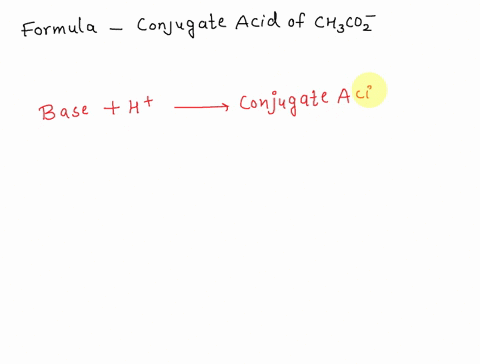 Formula – Conjugate Acid of CH₃CO₂⁻
Base + H⁺ ⟶ Conjugate Aci